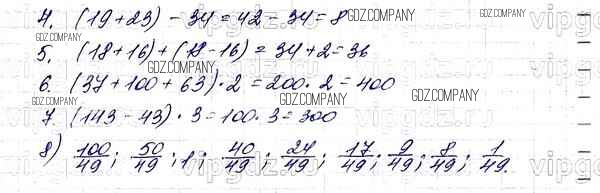 4. (19+23) - 34 = 42 - 34 = 8
5. (18+16) + (18-16) = 34 + 2 = 36
6. (37+100+63) · 2 = 200 · 2 = 400
7. (143 - 43) · 3 = 100 · 3 = 300
8) 100/49; 50/49; 1; 40/49; 24/49; 17/49; 9/49; 8/49; 1/49.
GDZ.COMPANY
GDZ.COMPANY
GDZ.COMPANY
GDZ.COMPANY
GDZ.COMPANY
GDZ.COMPANY